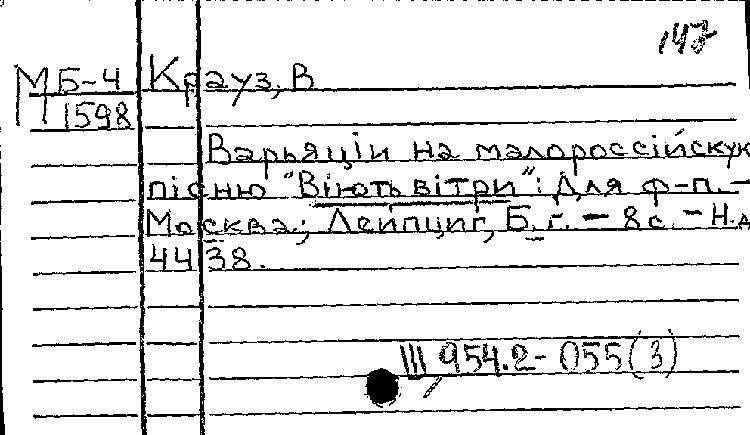 147
МБ-4 Крауз, В
1598
Варьяціи на малороссійскую
пісню "Віють вітри": Для ф-п. –
Москва; Лейпциг, Б. г. – 8 с. – Н.д
4438.
III 954.2-055(3)